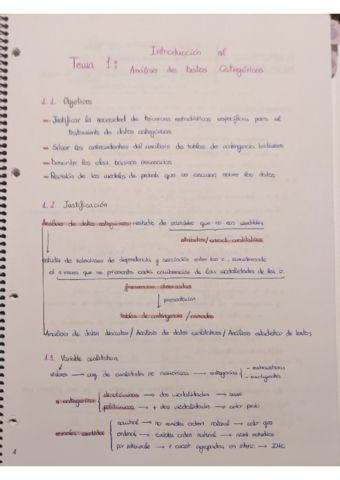 Introducción al
Tema 1: Análisis de Datos Categóricos
1.1. Objetivos
— Justificar la necesidad de técnicas estadísticas específicas para el
tratamiento de datos categóricos
— Situar los antecedentes del análisis de tablas de contingencia
— Describir las
— Revisión de los modelos de que se sobre los datos
1.2. Justificación
Análisis de datos categóricos: estudio de variables que no son medibles
atributos / variab. cualitativas
estudio de relaciones de dependencia y asociación entre las v.
el nº veces que se presentan cada combinación de las modalidades de las v.
frecuencias observadas
presentación
tablas de contingencia / cruzadas
Análisis de datos discretos / Análisis de datos cualitativos / Análisis estadístico de
1.3. Variable cualitativa
valores → conj. de cualidades no numéricas → categorías { - exhaustivas
- excluyentes
v. categóricas { dicotómicas → dos modalidades → sexo
politómicas → + dos modalidades → color pelo
nominal → no existe orden natural → color ojos
ordinal → existe orden natural → nivel estudios
por intervalo → v. cuant. agrupadas en interv. → IMC